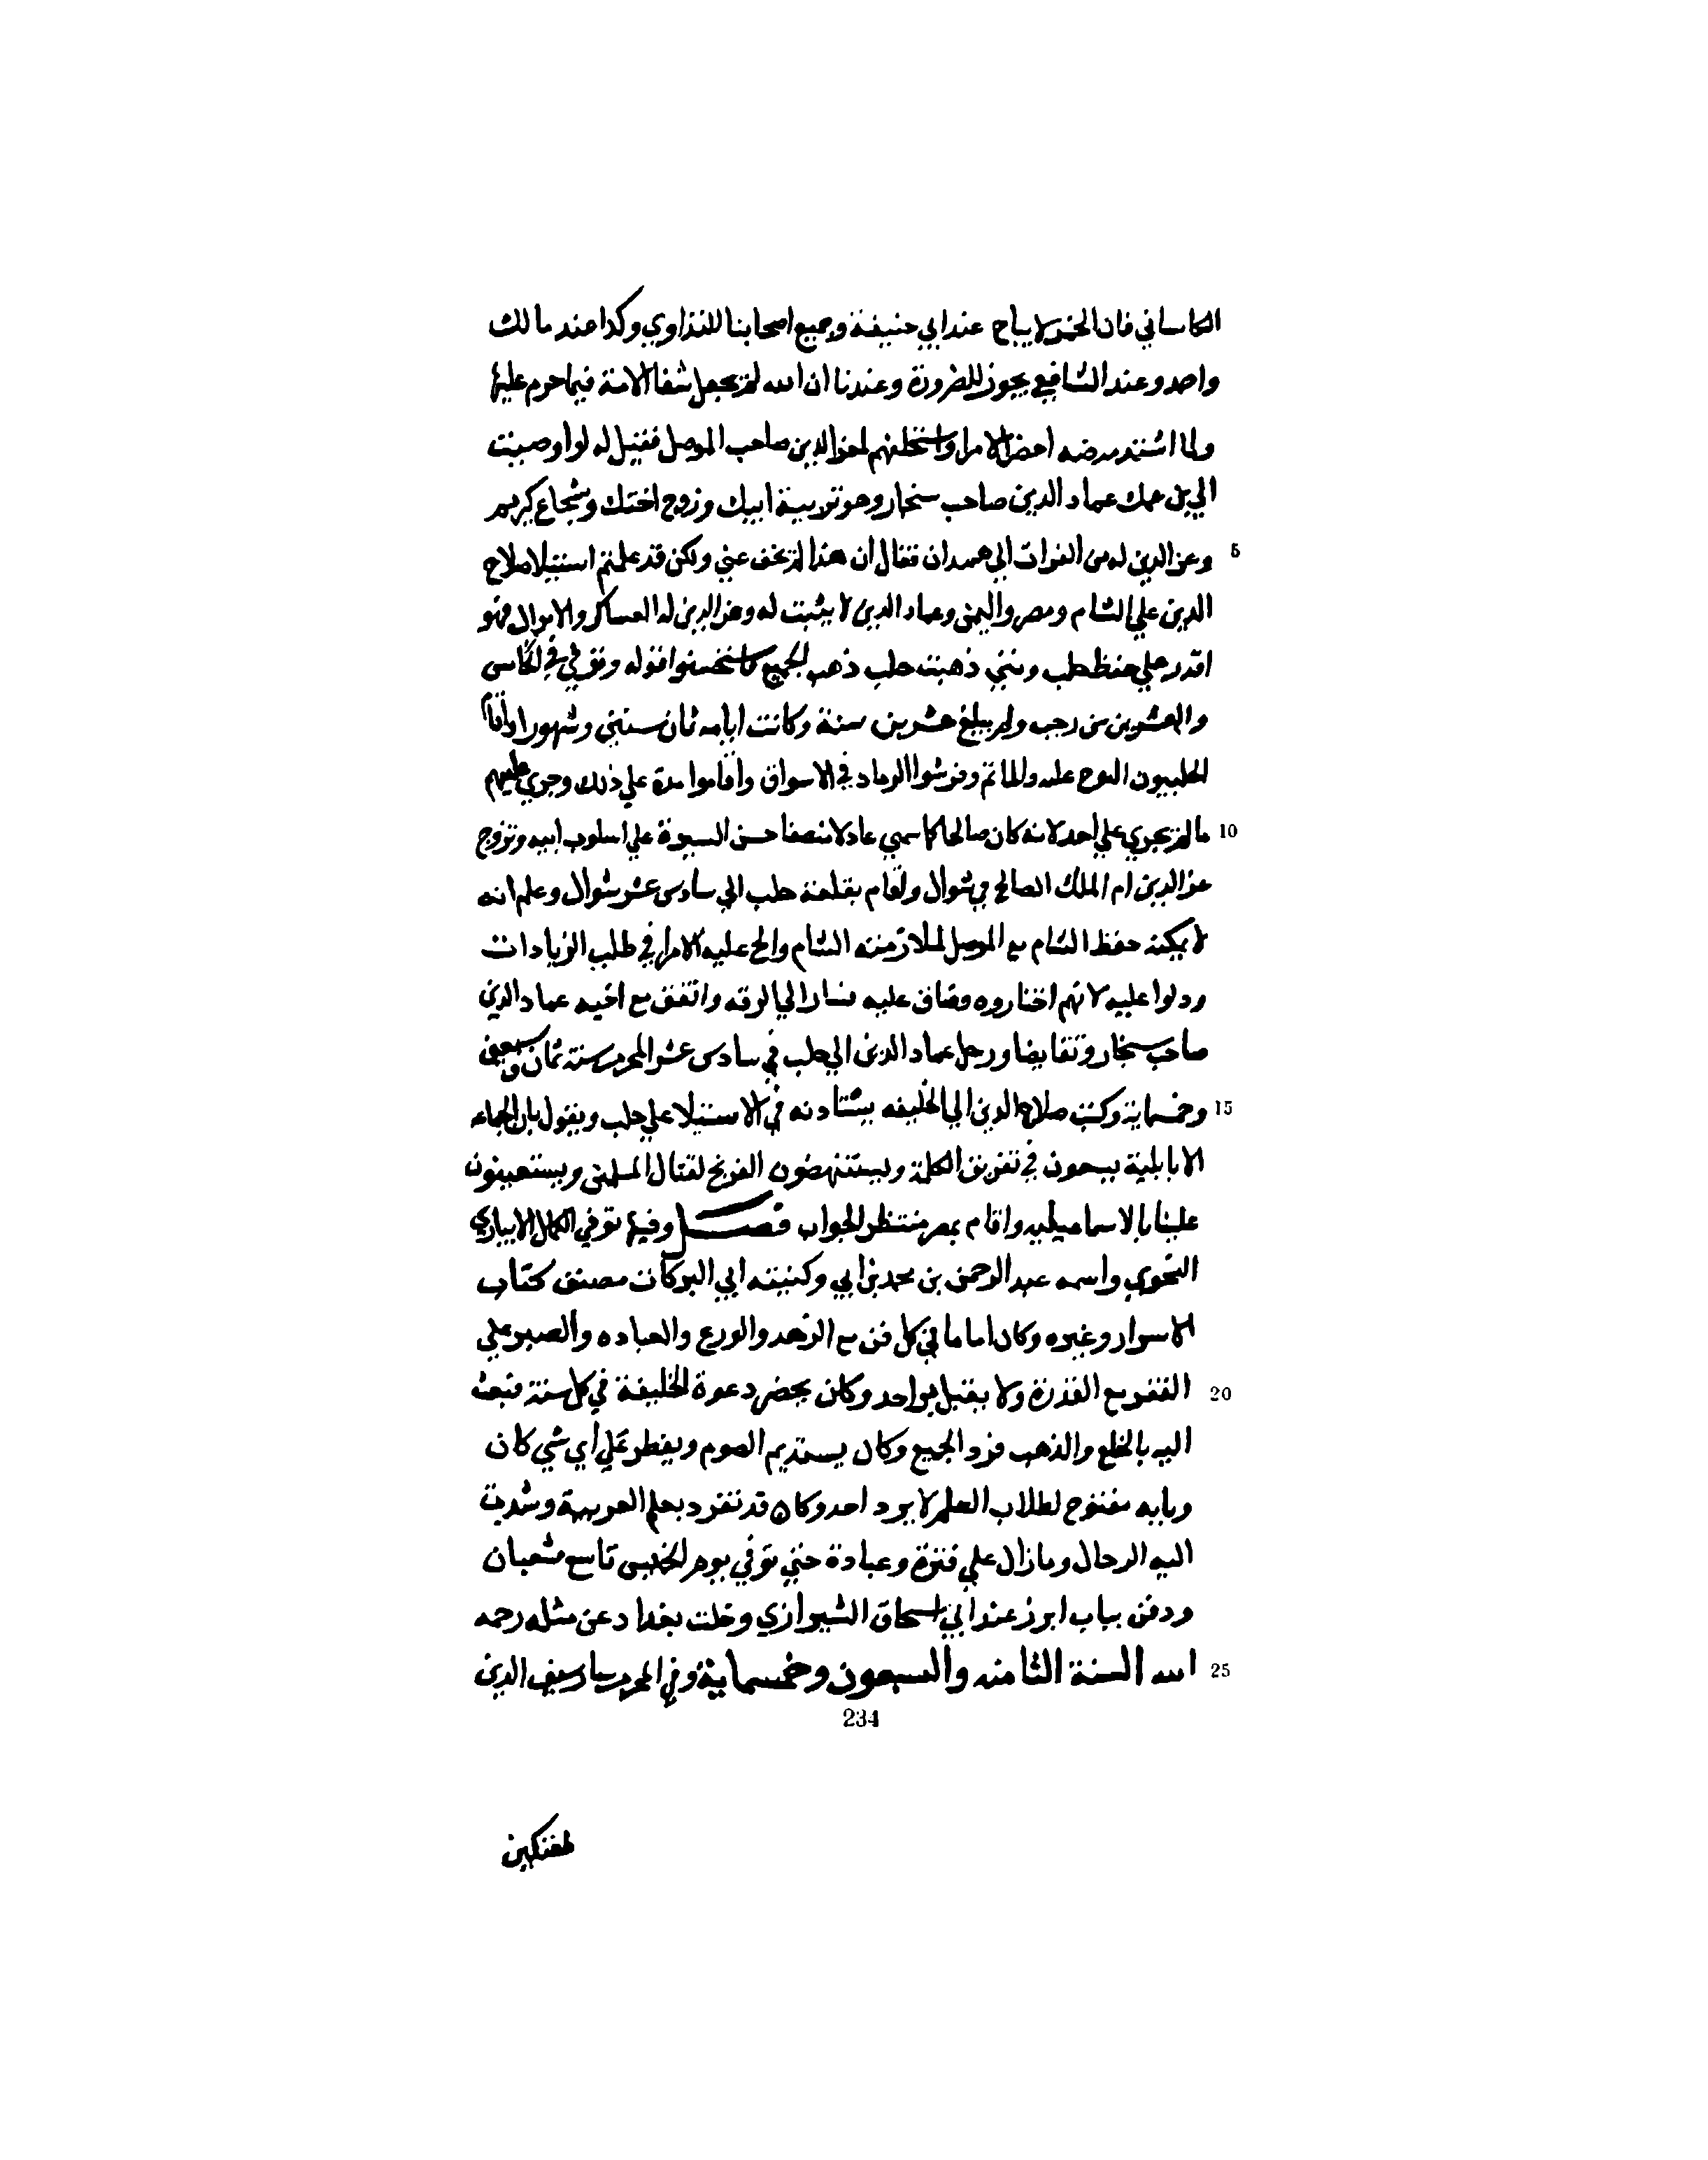 الكاساني فان الخمر لا يباح عند ابي حنيفة وجميع اصحابنا للتداوي وكذا عند مالك
واحمد وعند الشافعي يجوز للضرورة وعندنا ان الله لم يجعل شفا الامة فيما حرم عليها
ولما اشتد مرضه احضر الامرا واستحلفهم لعز الدين صاحب الموصل فقيل له لو اوصيت
الي بن عمك عماد الدين صاحب سنجار وهو تربية ابيك وزوج اختك وشجاع كريم
5 وعز الدين له من الفرات الي همدان فقال ان هذا لم يخف عني ولكن قد علمتم استيلا صلاح
الدين علي الشام ومصر واليمن وعماد الدين لا يثبت له وعز الدين له العساكر والاموال فهو
اقدر علي حفظ حلب ومتي ذهبت حلب ذهب الجميع فاستحسنوا قوله وتوفي في الخامس
والعشرين من رجب ولم يبلغ عشرين سنة وكانت ايامه ثمان سنين وشهورا واقام
الحلبيون النوح عليه والماتم وفرشوا الرماد في الاسواق واقاموا مدة علي ذلك وجري عليهم
10 ما لم يجري علي احد لانه كان صالحا كما سمي عادلا منصفا حسن السيرة علي اسلوب ابيه وتزوج
عز الدين ام الملك الصالح في شوال واقام بقلعة حلب الي سادس عشر شوال وعلم انه
لا يمكنه حفظ الشام مع الموصل لملازمته الشام والح عليه الامرا في طلب الزيادات
ودلوا عليه لانهم اختاروه وضاق عليه فسار الي الرقه واتفق مع اخيه عماد الدين
صاحب سنجار وتقايضا ورحل عماد الدين الي حلب في سادس عشر المحرم سنة ثمان وسبعين
15 وخمسماية وكتب صلاح الدين الي الخليفه يستادنه في الاستيلا علي حلب ويقول بان الجماعه
الاتابكية يسعون في تفريق الكلمة ويستنهضون الفرنج لقتال المسلمين ويستعينون
علينا بالاسماعيليه واقام بمصر منتظر الجواب فصل وفيها توفي الكمال الانباري
النحوي واسمه عبد الرحمن بن محمد بن ابي وكنيته ابي البركات مصنف كتاب
الاسرار وغيره وكان اماما في كل فن مع الزهد والورع والعباده والصبر علي
20 الفقر مع القدرة ولا يقبل بر احد وكان يحضر دعوة الخليفة في كل سنة فيبعث
اليه بالخلع والذهب فرد الجميع وكان يستديم الصوم ويفطر علي اي شي كان
وبابه مفتوح لطلاب العلم لا يرد احد وكان قد تفرد بعلم العربية وشدت
اليه الرحال وما زال علي فترة وعبادة حتي توفي يوم الخميس تاسع شعبان
ودفن بباب ابرز عند ابي اسحاق الشيرازي وخلت بغداد عن مثله رحمه
25 الله السنة الثامنه والسبعون وخمسماية وفي المحرم سار سيف الدين
234
طغتكين